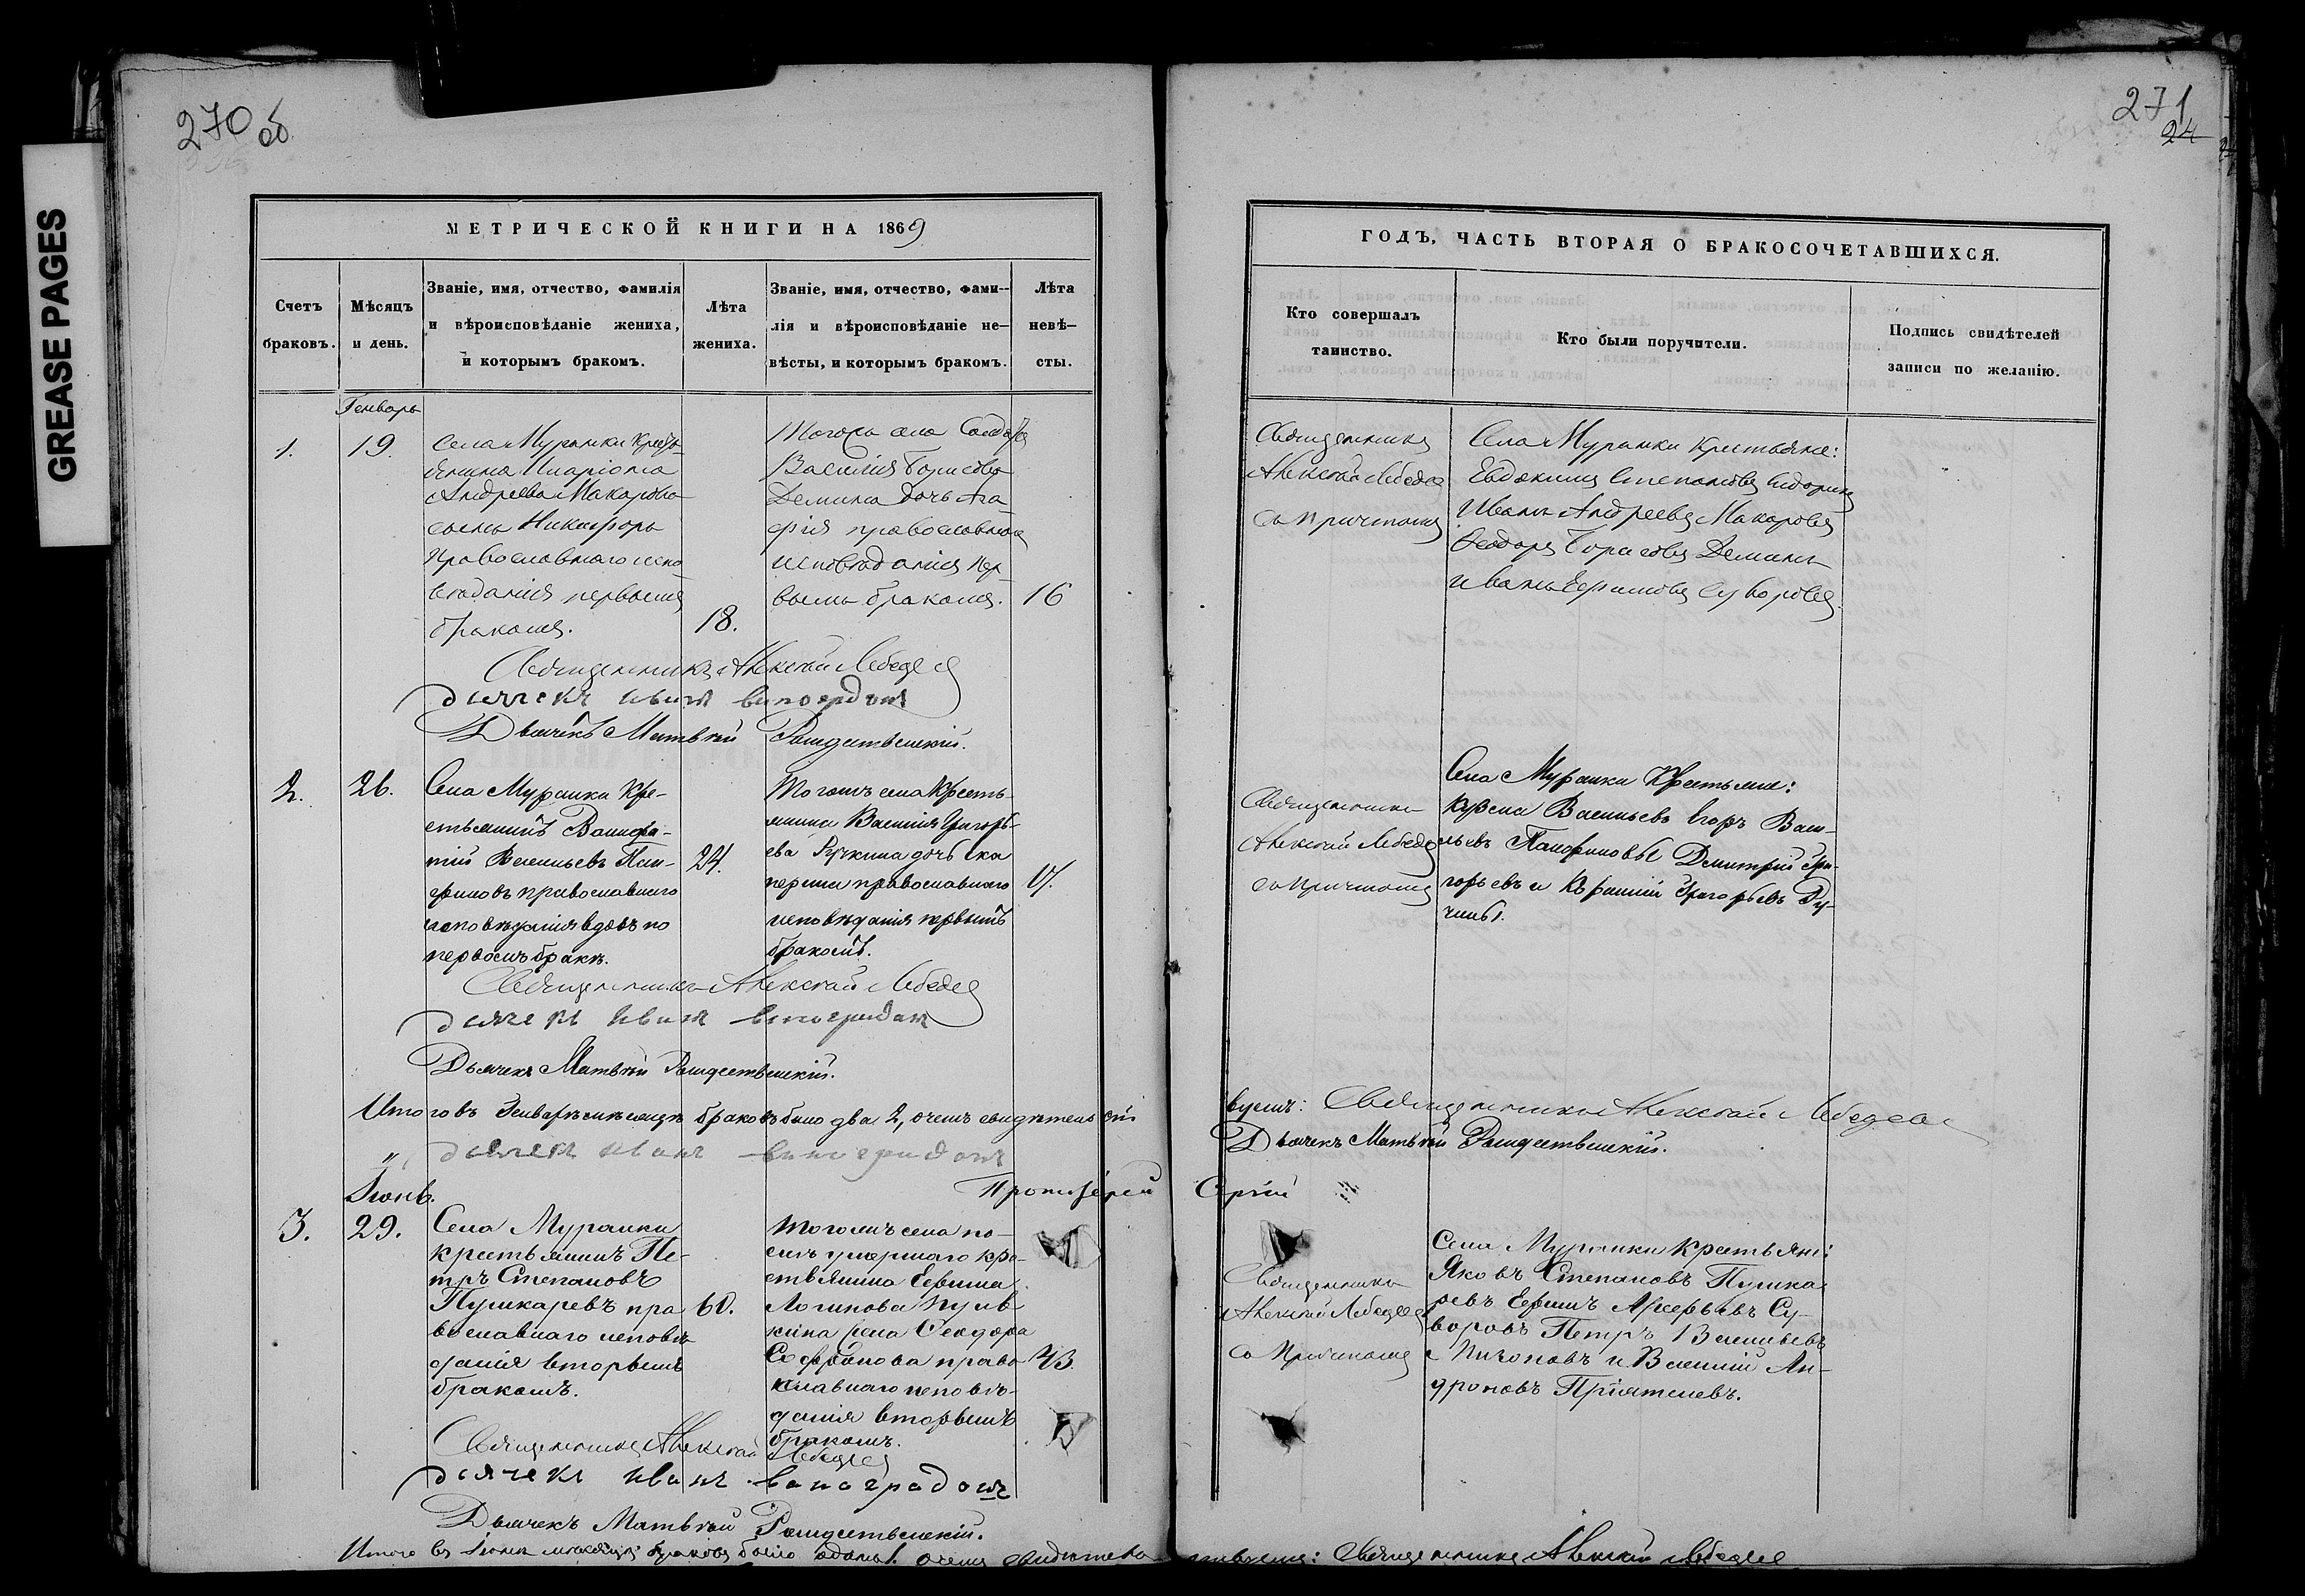 GREASE PAGES
270 об
271
24
МЕТРИЧЕСКОЙ КНИГИ НА 1869
ГОДЪ, ЧАСТЬ ВТОРАЯ О БРАКОСОЧЕТАВШИХСЯ.
Счетъ
браковъ.
Мѣсяцъ
и день.
Званіе, имя, отчество, фамилія
и вѣроисповѣданіе жениха,
и которымъ бракомъ.
Лѣта
жениха.
Званіе, имя, отчество, фами--
лія и вѣроисповѣданіе не—
вѣсты, и которымъ бракомъ.
Лѣта
невѣ—
сты.
Кто совершалъ
таинство.
Кто были поручители.
Подпись свидѣтелей
записи по желанію.
Генварь
1.
19.
Села Муранки кресть
янина Иларіона
Андреева Макарова
сынъ Никифоръ
православнаго испо
вѣданія первымъ
бракомъ.
18.
Тогожъ села
Василія Борисова
Демина дочь Ага
фія православнаго
исповѣданія пер
вымъ бракомъ.
16
Священникъ
Алексѣй Лебедев
съ причтомъ
Села Муранки крестьяне:
Евдокимъ Степановъ
Иванъ Андреевъ Макаровъ
Ѳеодоръ Борисовъ Деминъ
Иванъ Ефимовъ Суворовъ
Священникъ Алексѣй Лебедев
дьячекъ иванъ виноградовъ
Дьячекъ Матвѣй Рождественскій.
2.
26.
Села Муранки кре-
стьянинъ Вонифа-
тій Васильевъ Пан-
филовъ православнаго
исповѣданія вдовъ по
первомъ бракѣ.
24.
Тогожъ села кресть-
янина Василія Григорь-
ева Ручкина дочь Ека
терина православнаго
исповѣданія первымъ
бракомъ.
17.
Священникъ
Алексѣй Лебедев
съ причтомъ
Села Муранки Крестьяне:
Кузма Васильевъ Егоръ Васи-
льевъ Панфиловы Дмитрій Гри-
горьевъ и Григорьевъ Ру-
чины.
Священникъ Алексѣй Лебедев
дьячекъ иванъ виноградовъ
Дьячекъ Матвѣй Рождественскій.
Итого въ Генварѣ мѣсяцѣ браковъ было два 2, о чемъ свидѣтельст
вуемъ: Священникъ Алексѣй Лебедев
дьячекъ иванъ виноградовъ
Дьячекъ Матвѣй Рождественскій.
Протоіерей Сергій
Іюнь.
3.
29.
Села Муранки
крестьянинъ Пе-
тръ Степановъ
Пушкаревъ пра
вославнаго исповѣ
данія вторымъ
бракомъ.
60.
Тогожъ села по-
слѣ умершаго кре-
стьянина Ефима
Логинова
жена Ѳеодора
православнаго исповѣ-
данія вторымъ
бракомъ.
43.
Священникъ
Алексѣй Лебедев
съ причтомъ
Села Муранки крестьяне:
Яковъ Степановъ Пушка
ревъ Ефимъ Су-
воровъ Петръ Васильевъ
и Василій Ан-
дроновъ Пріятелевъ.
Священникъ Алексѣй
Лебедев
дьячекъ иванъ виноградовъ
Дьячекъ Матвѣй Рождественскій.
Итого въ Іюнѣ мѣсяцѣ браковъ было одинъ 1. о чемъ свидѣтель
ствуемъ: Священникъ Алексѣй Лебедев